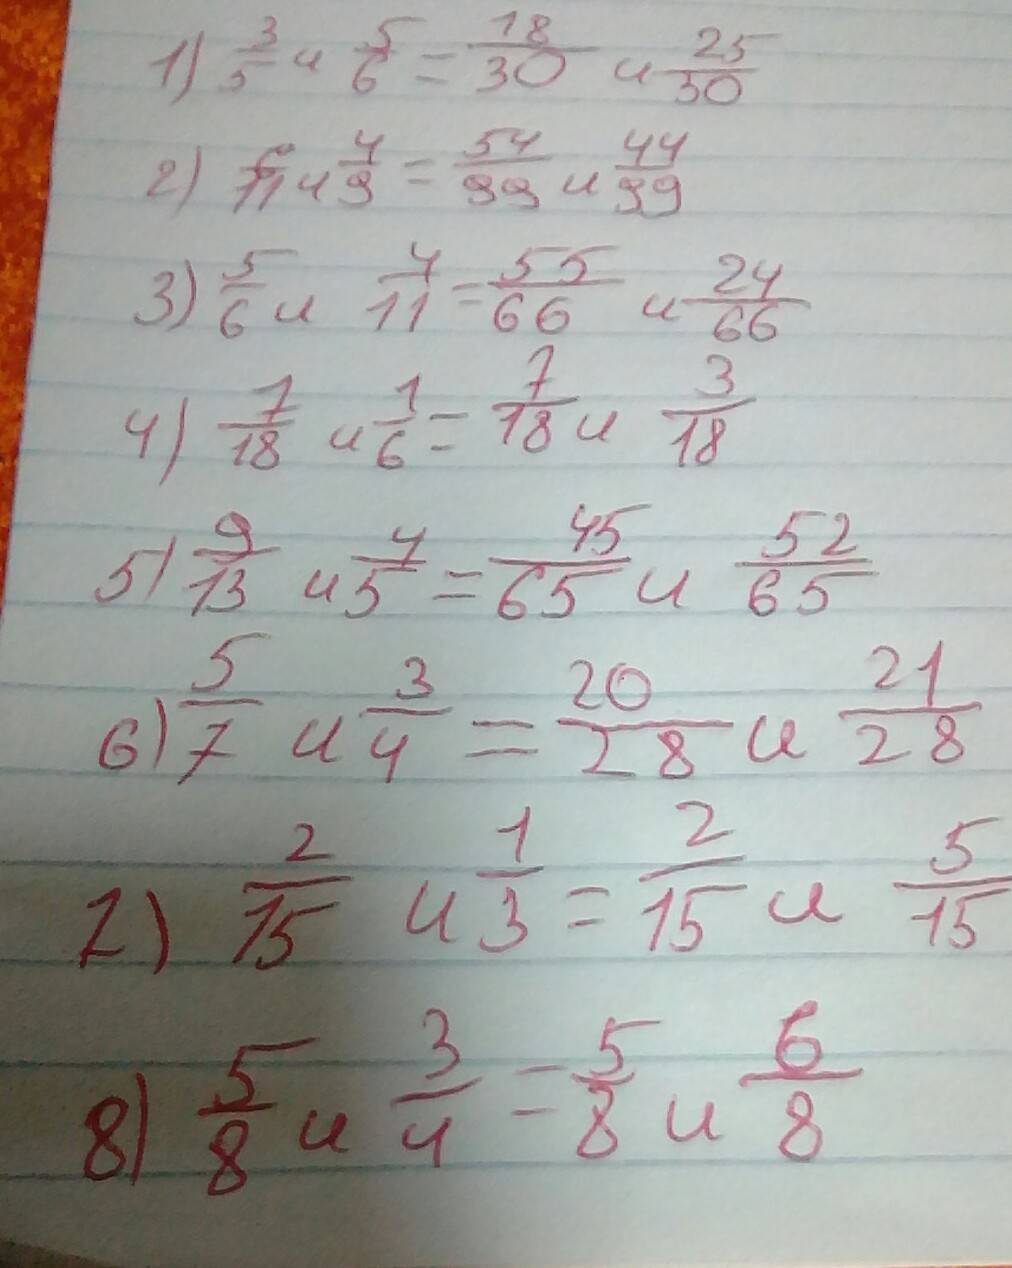 1) 3/5 и 5/6 = 18/30 и 25/30
2) 6/11 и 4/9 = 54/99 и 44/99
3) 5/6 и 4/11 = 55/66 и 24/66
4) 7/18 и 1/6 = 7/18 и 3/18
5) 9/13 и 4/5 = 45/65 и 52/65
6) 5/7 и 3/4 = 20/28 и 21/28
7) 2/15 и 1/3 = 2/15 и 5/15
8) 5/8 и 3/4 = 5/8 и 6/8